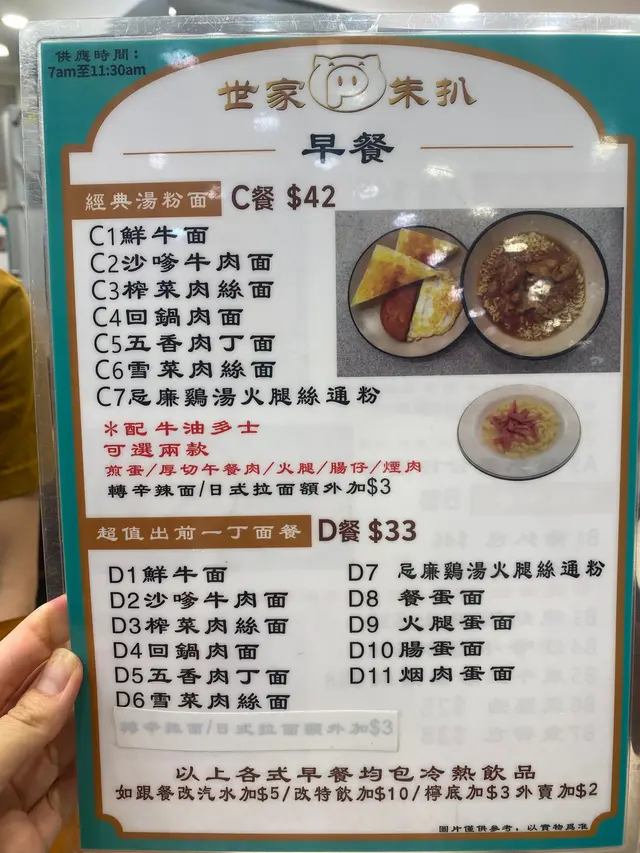 供應時間：
7am至11:30am
世家朱扒
早餐
經典湯粉面 C餐 $42
C1鮮牛面
C2沙嗲牛肉面
C3榨菜肉絲面
C4回鍋肉面
C5五香肉丁面
C6雪菜肉絲面
C7忌廉鷄湯火腿絲通粉
*配 牛油多士
可選兩款
煎蛋/厚切午餐肉/火腿/腸仔/煙肉
轉辛辣面/日式拉面額外加$3
超值出前一丁面餐 D餐 $33
D1鮮牛面
D2沙嗲牛肉面
D3榨菜肉絲面
D4回鍋肉面
D5五香肉丁面
D6雪菜肉絲面
D7 忌廉鷄湯火腿絲通粉
D8 餐蛋面
D9 火腿蛋面
D10腸蛋面
D11烟肉蛋面
轉辛辣面/日式拉面額外加$3
以上各式早餐均包冷熱飲品
如跟餐改汽水加$5/改特飲加$10/檸底加$3外賣加$2
圖片僅供參考，以實物爲准